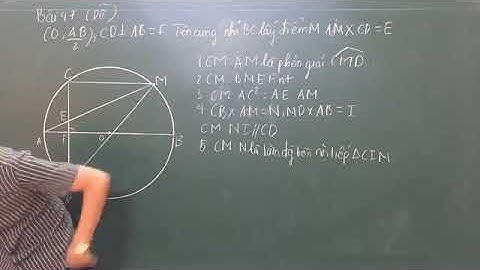 Bài 47 (Dễ)
(O, AB/2), CD ⊥ AB = F Trên cung nhỏ BC lấy điểm M AM X CD = E
1 CM: AM là phân giác CMD
2 CM. BMEF nt
3 CM AC² = AE AM
4 CB X AM = N, MD X AB = I
CM NI // CD
5 CM N là tâm đg tròn nội tiếp ΔCIM
C
M
E
A
F
O
B